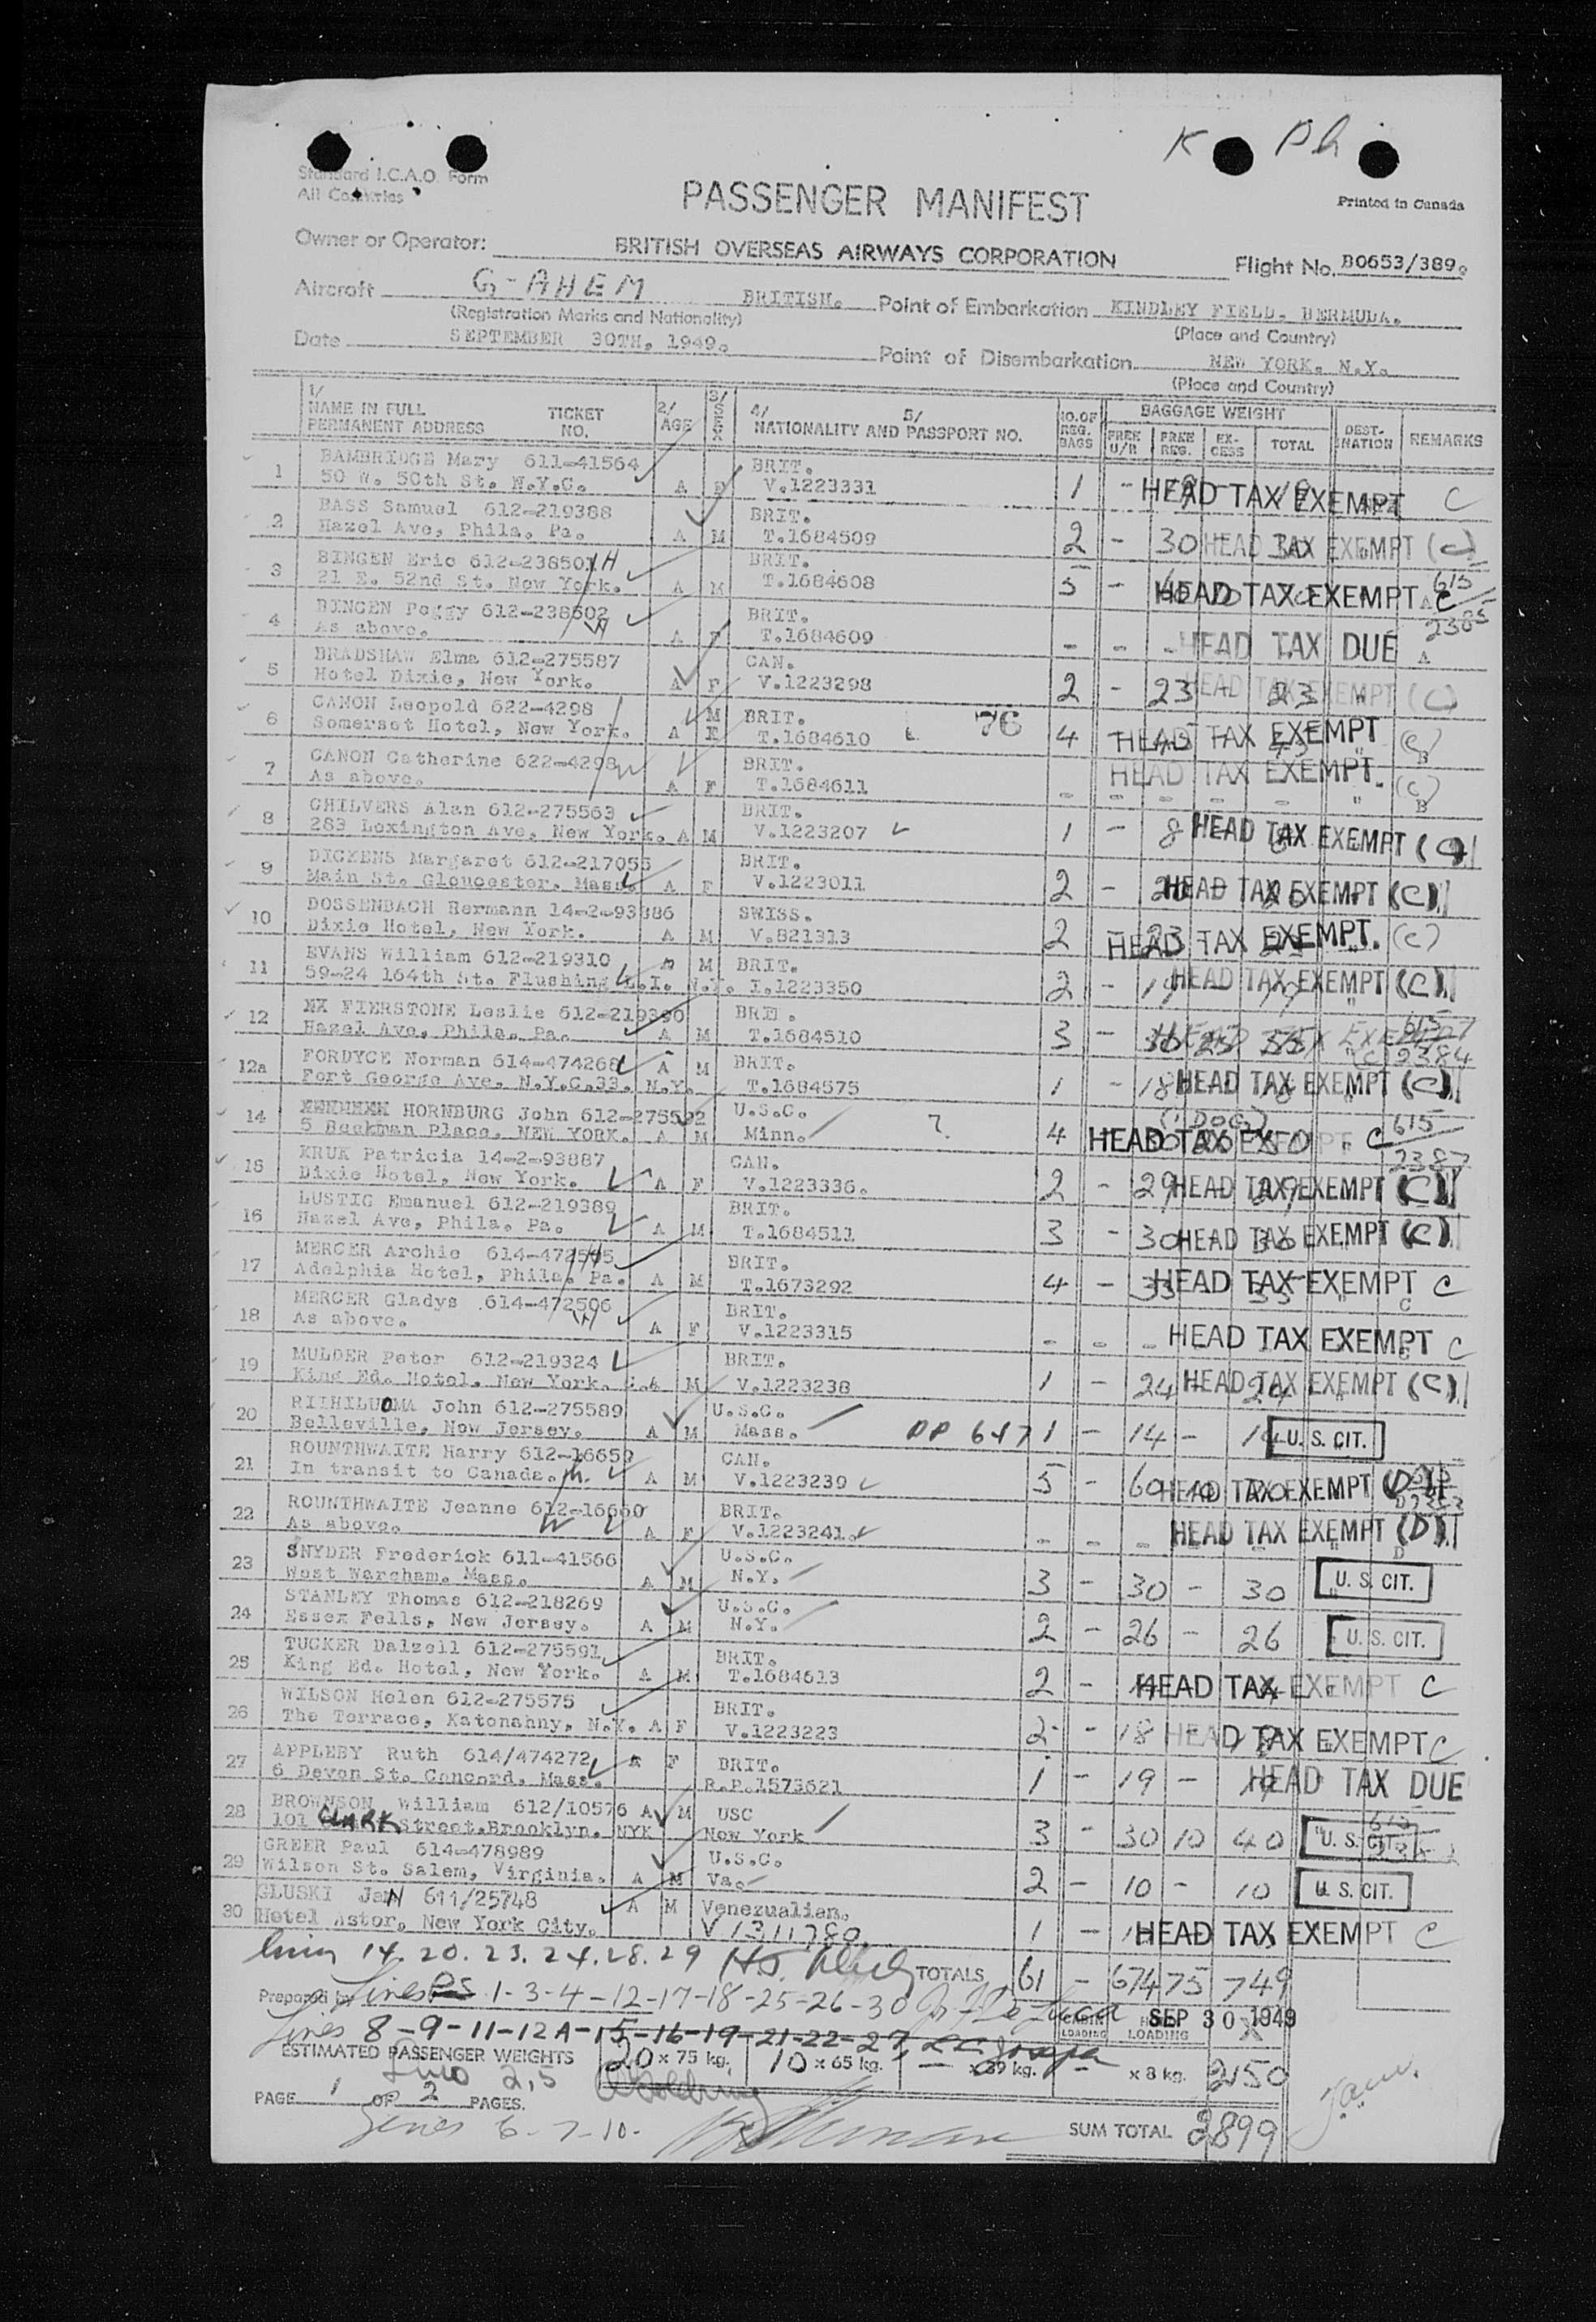 K Ph
Standard I.C.A.O. Form
All Countries
PASSENGER MANIFEST
Printed in Canada
Owner or Operator: BRITISH OVERSEAS AIRWAYS CORPORATION Flight No. B0653/389.
Aircraft G-AHEM BRITISH. Point of Embarkation KINDLEY FIELD. BERMUDA.
(Registration Marks and Nationality) (Place and Country)
Date SEPTEMBER 30TH, 1949. Point of Disembarkation NEW YORK. N.Y.
(Place and Country)
1/ NAME IN FULL PERMANENT ADDRESS TICKET NO. 2/ AGE 3/ SEX 4/ 5/ NATIONALITY AND PASSPORT NO. NO.OF REG. BAGS BAGGAGE WEIGHT FREE U/R FREE REG. EX-CESS TOTAL DEST-INATION REMARKS
1 BAMBRIDGE Mary 611-41564 BRIT.
50 W. 50th St. N.Y.C. A F V.1223331 1 - HEAD TAX EXEMPT C
2 BASS Samuel 612-219388 BRIT.
Hazel Ave, Phila. Pa. A M T.1684509 2 - 30 HEAD TAX EXEMPT (C)
3 BINGEN Eric 612-238501 H BRIT.
21 E. 52nd St. New York. A M T.1684608 5 - HEAD TAX EXEMPT C 615/2385
4 BINGEN Peggy 612-238502 W BRIT.
As above. A F T.1684609 - - - HEAD TAX DUE A
5 BRADSHAW Elma 612-275587 CAN.
Hotel Dixie, New York. A F V.1223298 2 - 23 - 23 HEAD TAX EXEMPT (C)
6 CANON Leopold 622-4298 M BRIT. 76
Somerset Hotel, New York. A F T.1684610 4 HEAD TAX EXEMPT (C) B
7 CANON Catherine 622-4298 W BRIT.
As above. A F T.1684611 - - - - - HEAD TAX EXEMPT. (C) B
8 CHILVERS Alan 612-275563 BRIT.
283 Lexington Ave, New York. A M V.1223207 1 - 8 HEAD TAX EXEMPT (C)
9 DICKENS Margaret 612-217055 BRIT.
Main St. Gloucester. Mass. A F V.1223011 2 - HEAD TAX EXEMPT (C)
10 DOSSENBACH Hermann 14-2-93886 SWISS.
Dixie Hotel, New York. A M V.821313 2 - 23 HEAD TAX EXEMPT. (C)
11 EVANS William 612-219310 A M BRIT.
59-24 164th St. Flushing L.I. N.Y. I.1223350 2 - 19 HEAD TAX EXEMPT (C)
12 FIERSTONE Leslie 612-219390 BRIT.
Hazel Ave, Phila. Pa. A M T.1684510 3 - 30 25 55 HEAD TAX EXEMPT (C) 615/2384
12a FORDYCE Norman 614-474268 A M BRIT.
Fort George Ave. N.Y.C.33. N.Y. T.1684575 1 - 18 HEAD TAX EXEMPT (C)
14 HORNBURG John 612-275592 U.S.C. (1 DOG)
5 Beekman Place. NEW YORK. A M Minn. 7. 4 HEAD TAX EXEMPT C 615/2387
15 KRUK Patricia 14-2-93887 CAN.
Dixie Hotel, New York. A F V.1223336. 2 - 29 HEAD TAX EXEMPT (C)
16 LUSTIG Emanuel 612-219389 BRIT.
Hazel Ave, Phila. Pa. A M T.1684511 3 - 30 HEAD TAX EXEMPT (C)
17 MERCER Archie 614-472505 H BRIT.
Adelphia Hotel, Phila. Pa. A M T.1673292 4 - 35 HEAD TAX EXEMPT C
18 MERCER Gladys 614-472506 W BRIT.
As above. A F V.1223315 - - - HEAD TAX EXEMPT C
19 MULDER Peter 612-219324 BRIT.
King Ed. Hotel, New York. A M V.1223238 1 - 24 - 24 HEAD TAX EXEMPT (C)
20 RIIHILUOMA John 612-275589 U.S.C.
Belleville, New Jersey. A M Mass. PP 647 1 - 14 - 14 U. S. CIT.
21 ROUNTHWAITE Harry 612-16659 CAN.
In transit to Canada. A M V.1223239 5 - 60 10 70 HEAD TAX EXEMPT (D)
22 ROUNTHWAITE Jeanne 612-16660 W BRIT.
As above. A F V.1223241. - - - HEAD TAX EXEMPT (D) D
23 SNYDER Frederick 611-41566 U.S.C.
West Wareham. Mass. A M N.Y. 3 - 30 - 30 U. S. CIT.
24 STANLEY Thomas 612-218269 U.S.C.
Essex Fells, New Jersey. A M N.Y. 2 - 26 - 26 U. S. CIT.
25 TUCKER Dalzell 612-275591 BRIT.
King Ed. Hotel, New York. A M T.1684613 2 - HEAD TAX EXEMPT C
26 WILSON Helen 612-275575 BRIT.
The Terrace, Katonahny, N.Y. A F V.1223223 2 - 18 HEAD TAX EXEMPT C
27 APPLEBY Ruth 614/474272 A F BRIT.
6 Devon St. Concord, Mass. R.P.1573621 1 - 19 - 19 HEAD TAX DUE
28 BROWNSON William 612/10576 A M USC
101 CLARK Street.Brooklyn. NYK New York 3 - 30 10 40 U. S. CIT.
29 GREER Paul 614-478989 U.S.C.
Wilson St. Salem, Virginia. A M Va. 2 - 10 - 10 U. S. CIT.
30 GLUSKI JaN 611/25748 A M Venezualian.
Hotel Astor. New York City. V 1311780. 1 - HEAD TAX EXEMPT C
14. 20. 23. 24. 28. 29 TOTALS 61 - 674 75 749
Prepared by Lines 1-3-4-12-17-18-25-26-30 SEP 30 1949
CABIN LOADING HOLD LOADING
Lines 8-9-11-12A-15-16-19-21-22-27
ESTIMATED PASSENGER WEIGHTS 20 x 75 kg. 10 x 65 kg. - x 39 kg. - x 8 kg. 2150
Lines 2,5
PAGE 1 OF 2 PAGES.
Lines 6-7-10-
SUM TOTAL 2899